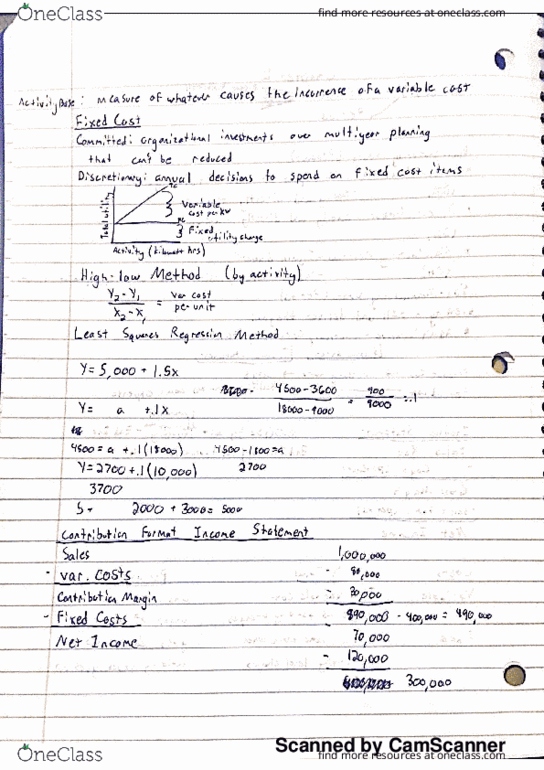 OneClass
find more resources at oneclass.com
Activity Base: measure of whatever causes the incurrence of a variable cost
Fixed Cost
Committed: organizational investments over multiyear planning
that can't be reduced
Discretionary: annual decisions to spend on fixed cost items
Total utility
TC
Variable
cost per kw
FC
Fixed
utility charge
Activity (kilowatt hrs)
High-low Method (by activity)
Y₂-Y₁ / X₂-X₁ = var cost per unit
Least Squares Regression Method
Y=5,000 + 1.5x
4500-3600 / 18000-9000 = 900 / 9000 = .1
Y= a +.1x
4500 = a +.1(18000) 4500-1800=a
Y=2700+.1(10,000) 2700
3700
5- 2000 + 3000= 5000
Contribution Format Income Statement
Sales 1,000,000
- var. costs - 80,000
Contribution Margin - 30,000
- Fixed Costs - 890,000 - 400,000 = 490,000
Net Income 70,000
- 120,000
300,000
Scanned by CamScanner
OneClass
find more resources at oneclass.com